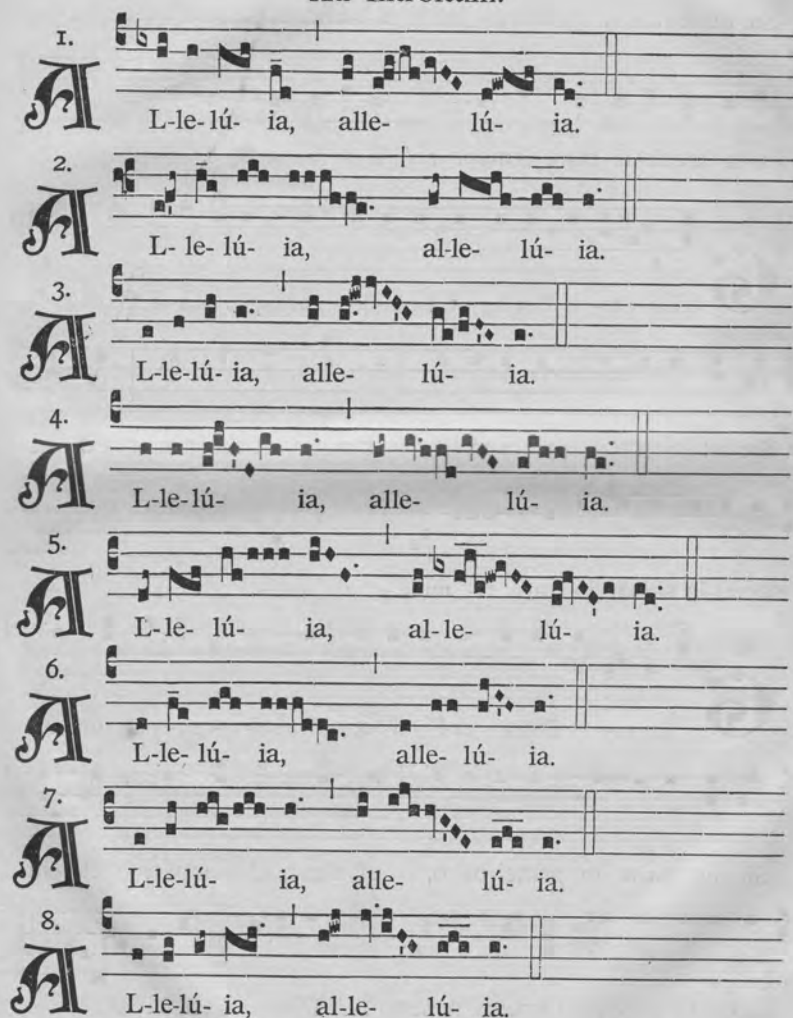 Ad Introitum.
1.
AL-le-lú- ia, alle- lú- ia.
2.
AL- le- lú- ia, al-le- lú- ia.
3.
AL-le-lú- ia, alle- lú- ia.
4.
AL-le-lú- ia, alle- lú- ia.
5.
AL- le- lú- ia, al- le- lú- ia.
6.
AL-le- lú- ia, alle- lú- ia.
7.
AL-le-lú- ia, alle- lú- ia.
8.
AL-le-lú- ia, al-le- lú- ia.